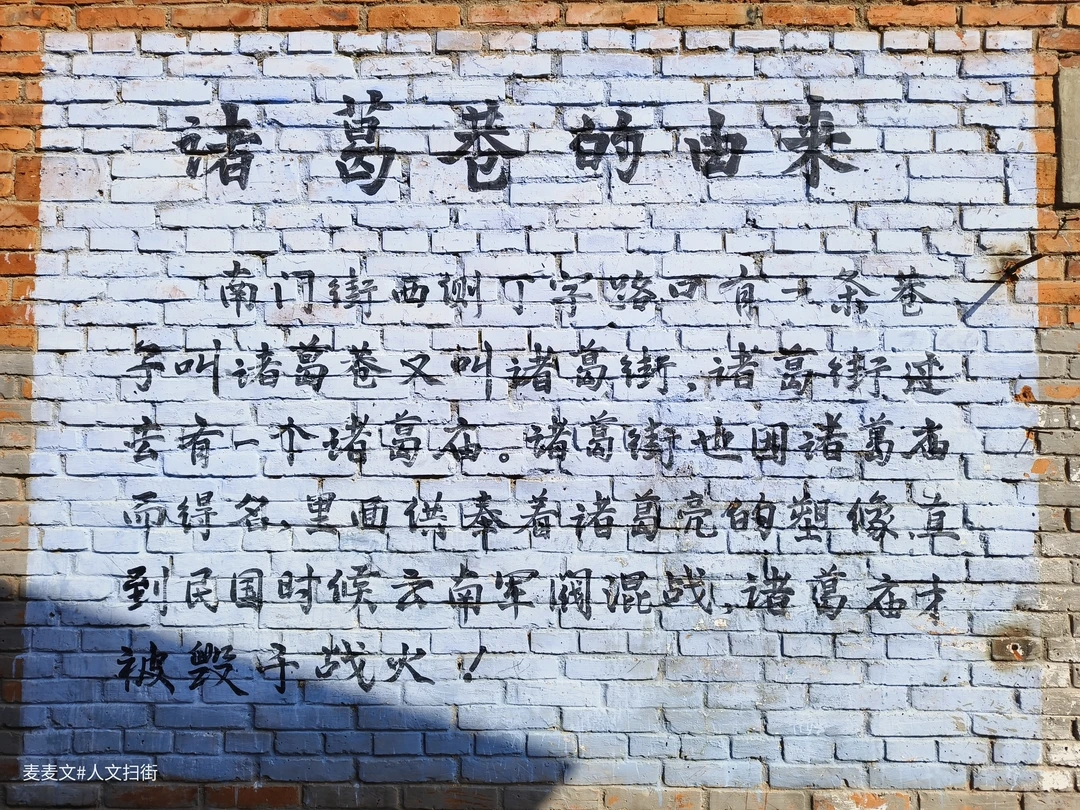 诸葛巷的由来
南门街西侧丁字路口有一条巷
子叫诸葛巷又叫诸葛街,诸葛街过
去有一个诸葛庙。诸葛街也因诸葛庙
而得名,里面供奉着诸葛亮的塑像,直
到民国时候云南军阀混战,诸葛庙才
被毁于战火!
麦麦文#人文扫街